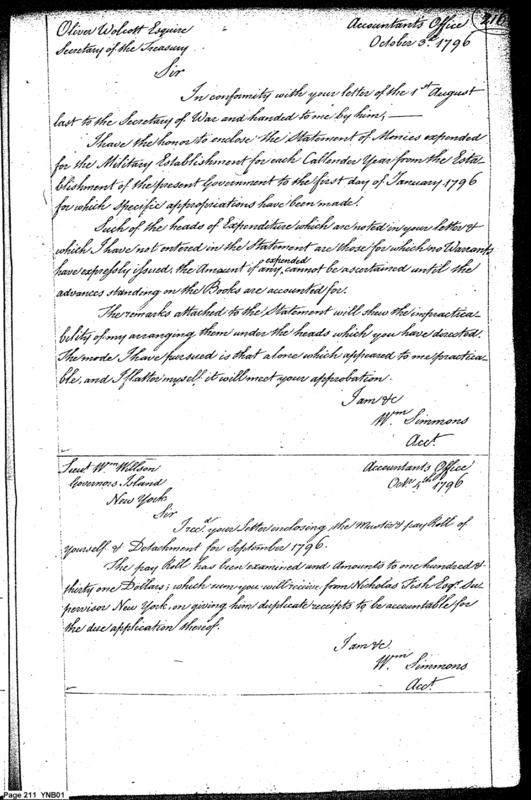 216
Oliver Wolcott Esquire
Accountants Office
Secretary of the Treasury
October 3d. 1796
Sir
In conformity with your letter of the 1st August
last to the Secretary of War and handed to me by him,—
I have the honor to enclose the Statement of Monies expended
for the Military Establishment for each Callender Year from the Esta-
blishment of the present Government to the first day of January 1796
for which specific appropriations have been made.
Such of the heads of Expenditure which are noted in your letter &
which I have not entered in the Statement are those for which no Warrants
have expressly issued, the Amount of any expended cannot be ascertained until the
advances standing on the Books are accounted for.
The remarks attached to the Statement will shew the impractica-
bility of my arranging them under the heads which you have directed.
The mode I have pursued is that alone which appeared to me practica-
ble, and I flatter myself it will meet your approbation.
I am &c
Wm Simmons
Acct.
Lieut. Wm Willson
Accountants Office
Governors Island
Octr. 4th 1796
New York
Sir
I recd. your Letter enclosing the Muster & pay Roll of
yourself & Detachment for September 1796.
The pay Roll has been examined and Amounts to one hundred &
thirty one Dollars; which sum you will receive from Nicholas Fish Esqr. Su-
pervisor New York, on giving him duplicate receipts to be accountable for
the due application thereof.
I am &c.
Wm. Simmons
Acct.
Page 211 YNB01